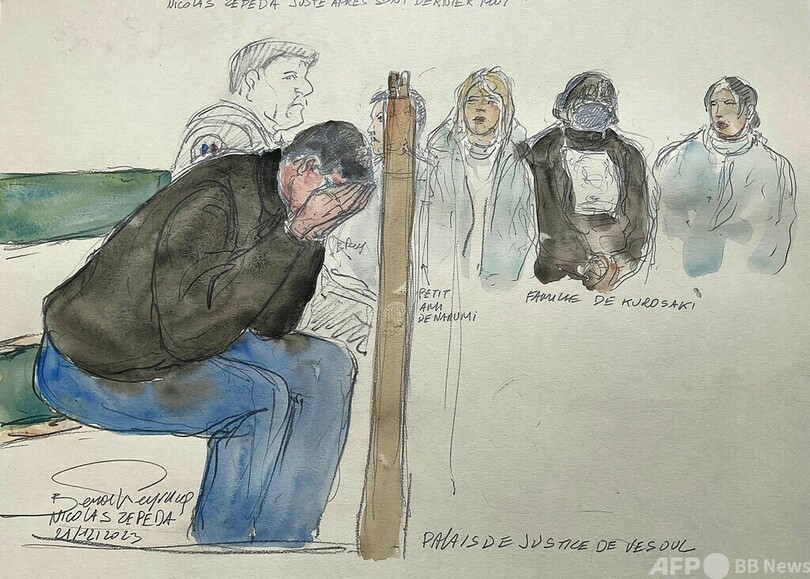 NICOLAS ZEPEDA JUSTE APRES SONT DERNIER MOT
PETIT
AMI
DE NARUMI
FAMILLE DE KUROSAKI
NICOLAS ZEPEDA
21/12/2023
PALAIS DE JUSTICE DE VESOUL
AFP BB News